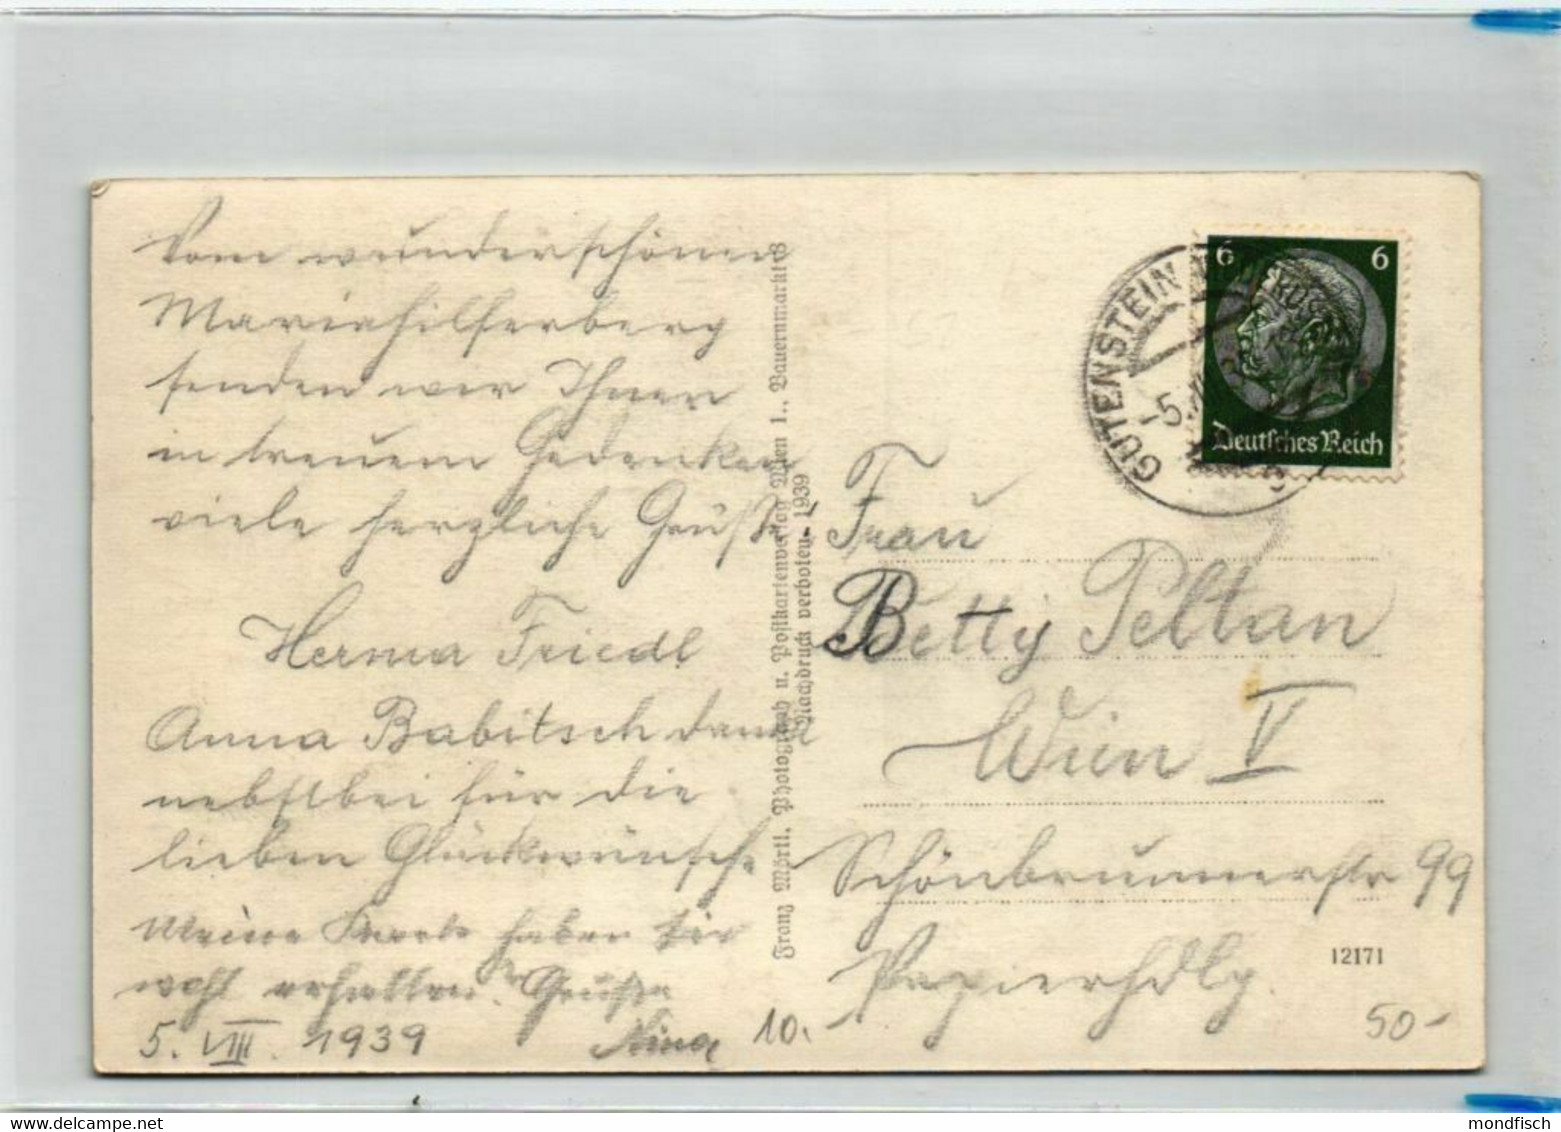 Vom wunderschönen
Mariahilferberg
senden wir Ihnen
in treuem Gedenken
viele herzliche Grüße
Herma Friedl
Anna Babitsch dankt
nebstbei für die
lieben Glückwünsche
Meine Karte haben Sie
wohl erhalten. Grüße
5. VIII. 1939 Nina
10.-
Franz Mörtl, Photograph u. Postkartenverlag Wien 1., Bauernmarkt 3
Nachdruck verboten 1939
GUTENSTEIN
-5.
6 6
Deutsches Reich
Frau
Betty Peltan
Wien V
Schönbrunnerstr 99
Papierhdlg.
12171
50-
mondfisch